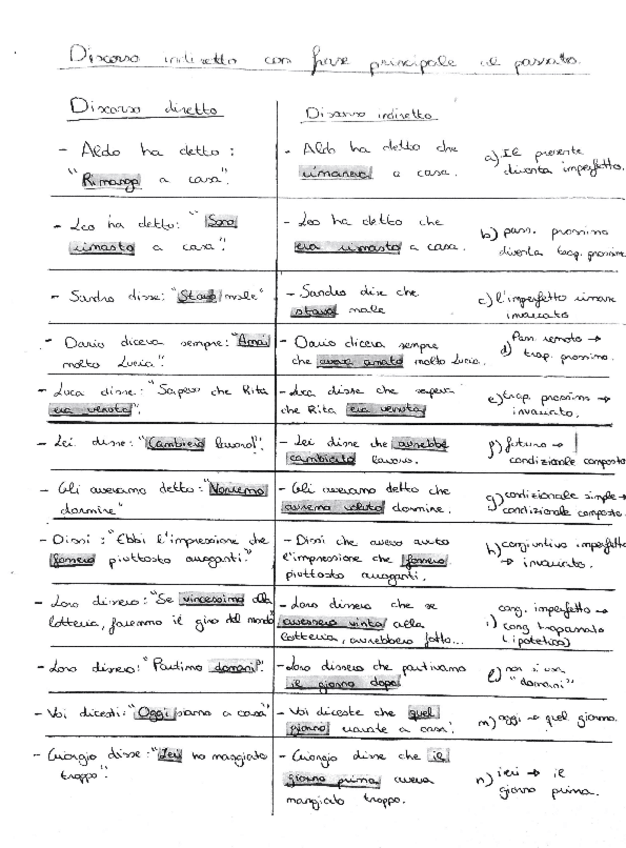 Discorso indiretto con frase principale al passato.
Discorso diretto
Discorso indiretto
- Aldo ha detto :
"Rimango a casa".
- Aldo ha detto che
rimaneva a casa.
a) Il presente
diventa imperfetto.
- Leo ha detto: "Sono
rimasto a casa".
- Leo ha detto che
era rimasto a casa.
b) pass. prossimo
diventa trap. prossimo
- Sandro disse: "Stavo male"
- Sandro disse che
stava male
c) l'imperfetto rimane
invariato
- Dario diceva sempre: "Amai
molto Lucia".
- Dario diceva sempre
che aveva amato molto Lucia.
d) Pass. remoto →
trap. prossimo.
- Luca disse: "Sapevo che Rita
era venuta".
- Luca disse che sapeva
che Rita era venuta
e) trap. prossimo →
invariato.
- Lei disse: "Cambierò lavoro!".
- Lei disse che avrebbe
cambiato lavoro.
f) futuro →
condizionale composto
- Gli avevamo detto: "Vorremmo
dormire"
- Gli avevamo detto che
avremmo voluto dormire.
g) condizionale simple →
condizionale composto.
- Dissi : "Ebbi l'impressione che
fossero piuttosto arroganti."
- Dissi che avevo avuto
l'impressione che fossero
piuttosto arroganti.
h) congiuntivo imperfetto
→ invariato.
- Loro dissero: "Se vincessimo alla
lotteria, faremmo il giro del mondo"
- Loro dissero che se
avessero vinto alla
lotteria, avrebbero fatto...
i) cong. imperfetto →
cong trapassato
(ipotetico)
- Loro dissero: "Partiamo domani".
- Loro dissero che partivano
il giorno dopo
l) non si usa
"domani"
- Voi diceste: "Oggi siamo a casa"
- Voi diceste che quel
giorno eravate a casa.
m) oggi → quel giorno.
- Giorgio disse: "Ieri ho mangiato
troppo".
- Giorgio disse che il
giorno prima aveva
mangiato troppo.
n) ieri → il
giorno prima.